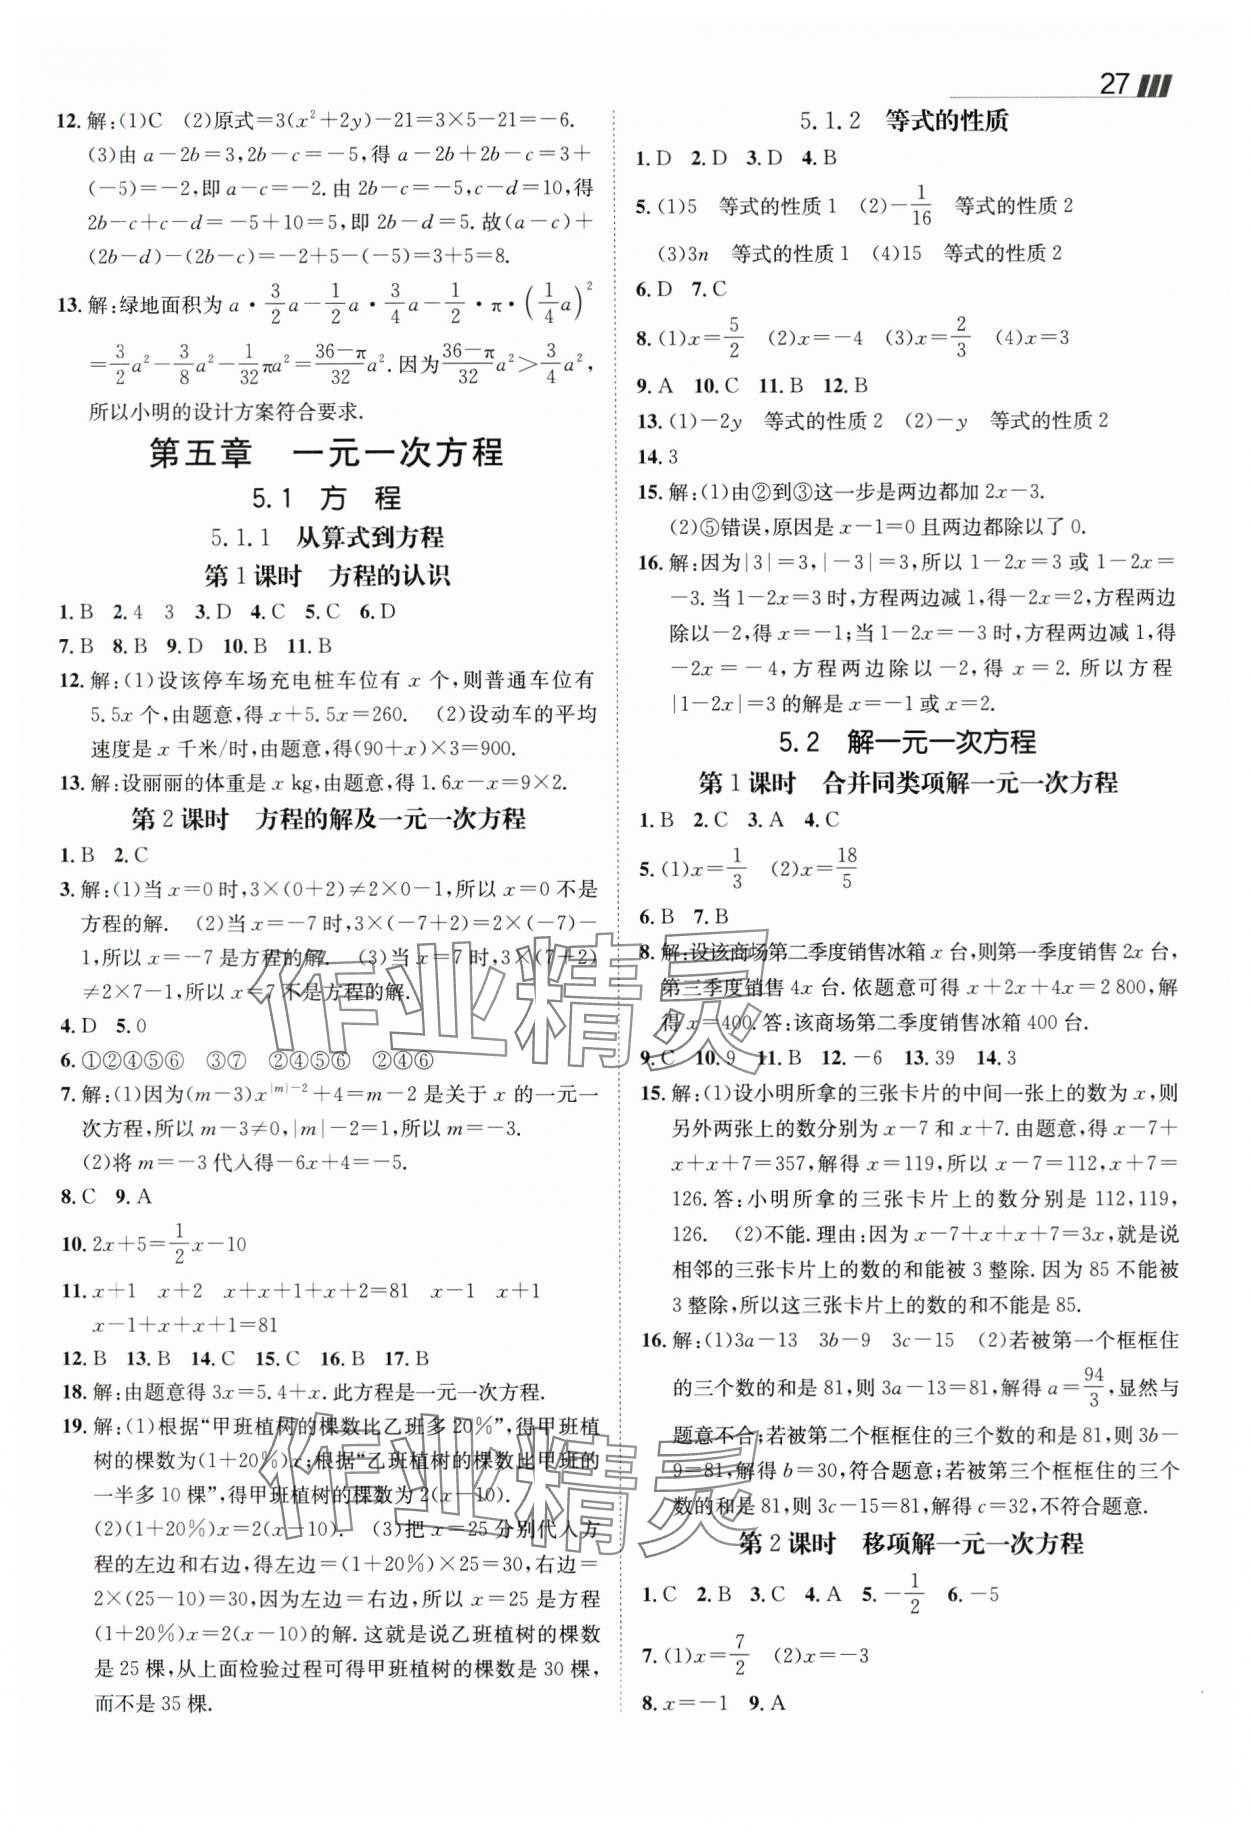 27
12. 解:(1)C (2)原式=3(x²+2y)-21=3×5-21=-6.
(3)由 a-2b=3,2b-c=-5,得 a-2b+2b-c=3+
(-5)=-2,即 a-c=-2.由 2b-c=-5,c-d=10,得
2b-c+c-d=-5+10=5,即 2b-d=5.故(a-c)+
(2b-d)-(2b-c)=-2+5-(-5)=3+5=8.
13. 解:绿地面积为 a·3/2a-1/2a·3/4a-1/2·π·(1/4a)²
=3/2a²-3/8a²-1/32πa²=36-π/32a².因为36-π/32a²>3/4a²,
所以小明的设计方案符合要求.
第五章 一元一次方程
5.1 方 程
5.1.1 从算式到方程
第1课时 方程的认识
1. B 2. 4 3 3. D 4. C 5. C 6. D
7. B 8. B 9. D 10. B 11. B
12. 解:(1)设该停车场充电桩车位有 x 个,则普通车位有
5.5x 个,由题意,得 x+5.5x=260. (2)设动车的平均
速度是 x 千米/时,由题意,得(90+x)×3=900.
13. 解:设丽丽的体重是 x kg,由题意,得1.6x-x=9×2.
第2课时 方程的解及一元一次方程
1. B 2. C
3. 解:(1)当 x=0 时,3×(0+2)≠2×0-1,所以 x=0 不是
方程的解. (2)当 x=-7 时,3×(-7+2)=2×(-7)-
1,所以 x=-7 是方程的解. (3)当 x=7 时,3×(7+2)
≠2×7-1,所以 x=7 不是方程的解.
4. D 5. 0
6. ①②④⑤⑥ ③⑦ ②④⑤⑥ ②④⑥
7. 解:(1)因为(m-3)x^{|m|-2}+4=m-2 是关于 x 的一元一
次方程,所以 m-3≠0,|m|-2=1,所以 m=-3.
(2)将 m=-3 代入得-6x+4=-5.
8. C 9. A
10. 2x+5=1/2x-10
11. x+1 x+2 x+x+1+x+2=81 x-1 x+1
x-1+x+x+1=81
12. B 13. B 14. C 15. C 16. B 17. B
18. 解:由题意得 3x=5.4+x.此方程是一元一次方程.
19. 解:(1)根据“甲班植树的棵数比乙班多20%”,得甲班植
树的棵数为(1+20%)x;根据“乙班植树的棵数比甲班的
一半多10棵”,得甲班植树的棵数为 2(x-10).
(2)(1+20%)x=2(x-10). (3)把 x=25 分别代入方
程的左边和右边,得左边=(1+20%)×25=30,右边=
2×(25-10)=30,因为左边=右边,所以 x=25 是方程
(1+20%)x=2(x-10)的解.这就是说乙班植树的棵数
是 25 棵,从上面检验过程可得甲班植树的棵数是 30 棵,
而不是 35 棵.
5.1.2 等式的性质
1. D 2. D 3. D 4. B
5. (1)5 等式的性质1 (2)-1/16 等式的性质2
(3)3n 等式的性质1 (4)15 等式的性质2
6. D 7. C
8. (1)x=5/2 (2)x=-4 (3)x=2/3 (4)x=3
9. A 10. C 11. B 12. B
13. (1)-2y 等式的性质2 (2)-y 等式的性质2
14. 3
15. 解:(1)由②到③这一步是两边都加 2x-3.
(2)⑤错误,原因是 x-1=0 且两边都除以了 0.
16. 解:因为|3|=3,|-3|=3,所以 1-2x=3 或 1-2x=
-3.当1-2x=3时,方程两边减1,得-2x=2,方程两边
除以-2,得 x=-1;当1-2x=-3时,方程两边减1,得
-2x=-4,方程两边除以-2,得 x=2.所以方程
|1-2x|=3的解是x=-1或x=2.
5.2 解一元一次方程
第1课时 合并同类项解一元一次方程
1. B 2. C 3. A 4. C
5. (1)x=1/3 (2)x=18/5
6. B 7. B
8. 解:设该商场第二季度销售冰箱 x 台,则第一季度销售 2x 台,
第三季度销售 4x 台.依题意可得 x+2x+4x=2 800,解
得 x=400.答:该商场第二季度销售冰箱 400 台.
9. C 10. 9 11. B 12. -6 13. 39 14. 3
15. 解:(1)设小明所拿的三张卡片的中间一张上的数为 x,则
另外两张上的数分别为 x-7 和 x+7.由题意,得 x-7+
x+x+7=357,解得 x=119,所以 x-7=112,x+7=
126.答:小明所拿的三张卡片上的数分别是 112,119,
126. (2)不能.理由:因为 x-7+x+x+7=3x,就是说
相邻的三张卡片上的数的和能被 3 整除.因为 85 不能被
3 整除,所以这三张卡片上的数的和不能是 85.
16. 解:(1)3a-13 3b-9 3c-15 (2)若被第一个框框住
的三个数的和是 81,则 3a-13=81,解得 a=94/3,显然与
题意不合;若被第二个框框住的三个数的和是 81,则 3b-
9=81,解得 b=30,符合题意;若被第三个框框住的三个
数的和是 81,则 3c-15=81,解得 c=32,不符合题意.
第2课时 移项解一元一次方程
1. C 2. B 3. C 4. A 5. -1/2 6. -5
7. (1)x=7/2 (2)x=-3
8. x=-1 9. A
作业精灵
作业精灵